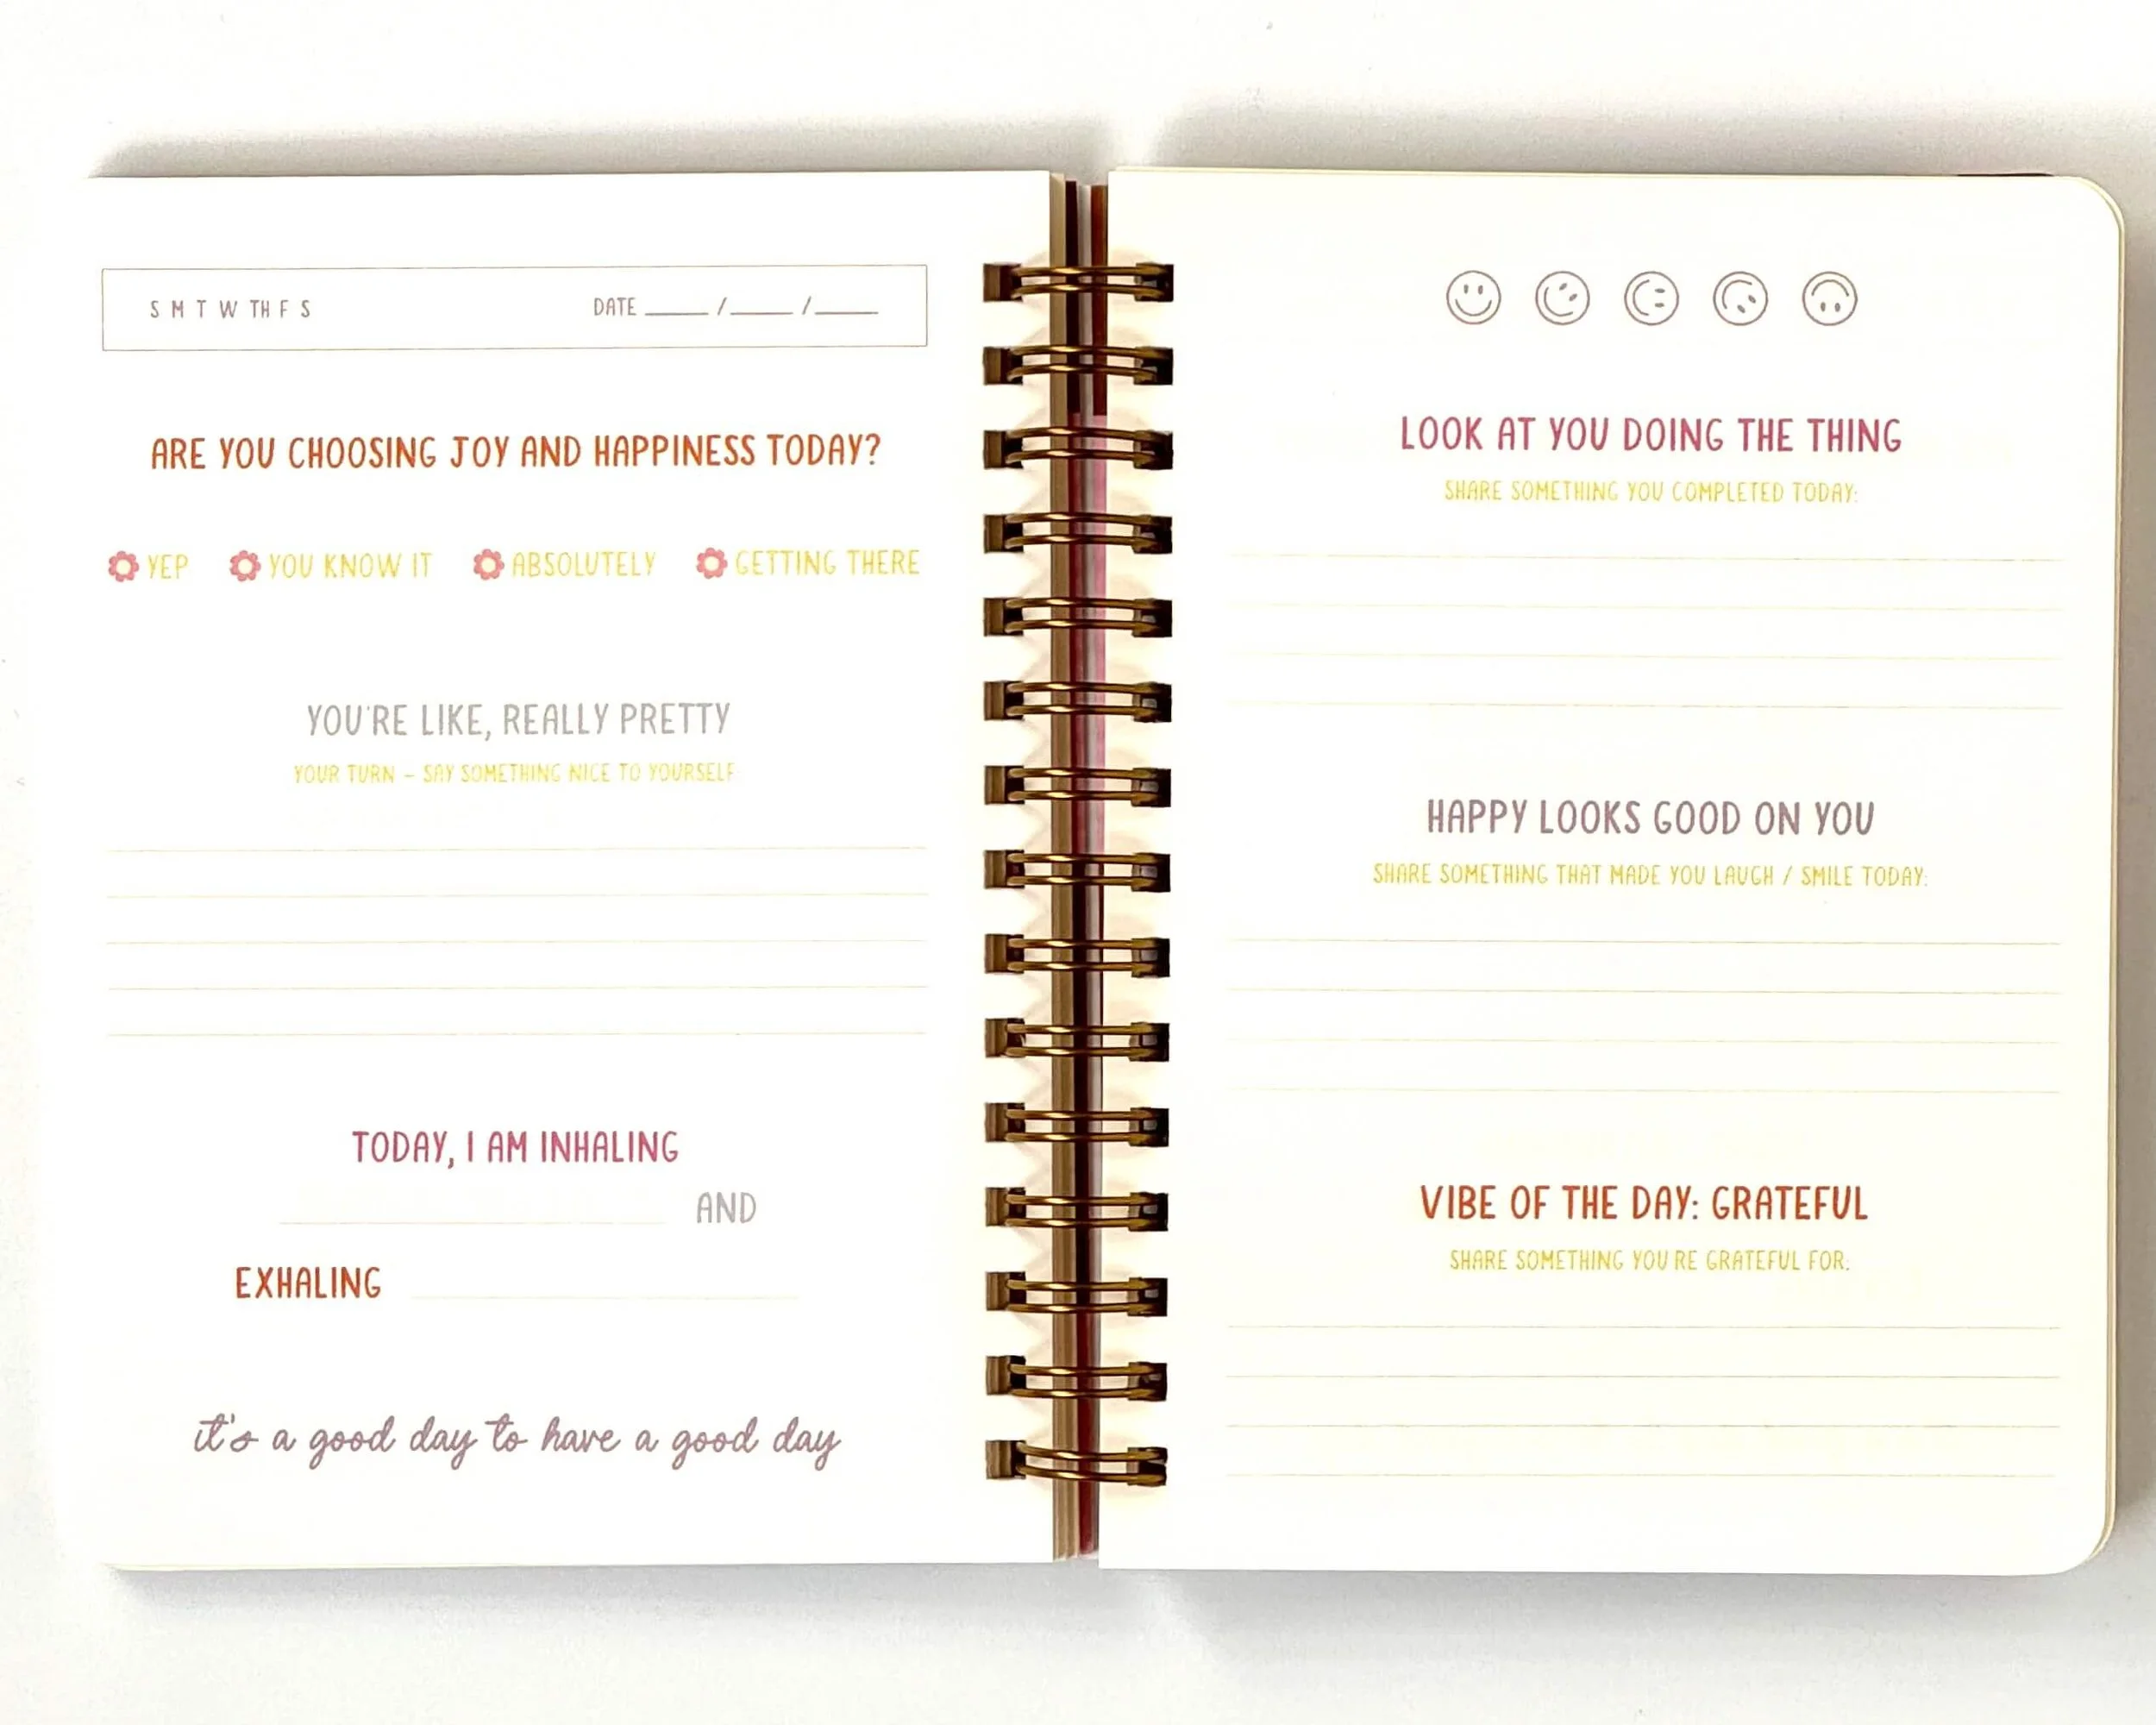 S M T W TH F S DATE ____ / ____ / ____
ARE YOU CHOOSING JOY AND HAPPINESS TODAY?
YEP YOU KNOW IT ABSOLUTELY GETTING THERE
YOU'RE LIKE, REALLY PRETTY
YOUR TURN – SAY SOMETHING NICE TO YOURSELF:
TODAY, I AM INHALING
AND
EXHALING
it's a good day to have a good day
LOOK AT YOU DOING THE THING
SHARE SOMETHING YOU COMPLETED TODAY:
HAPPY LOOKS GOOD ON YOU
SHARE SOMETHING THAT MADE YOU LAUGH / SMILE TODAY:
VIBE OF THE DAY: GRATEFUL
SHARE SOMETHING YOU'RE GRATEFUL FOR: